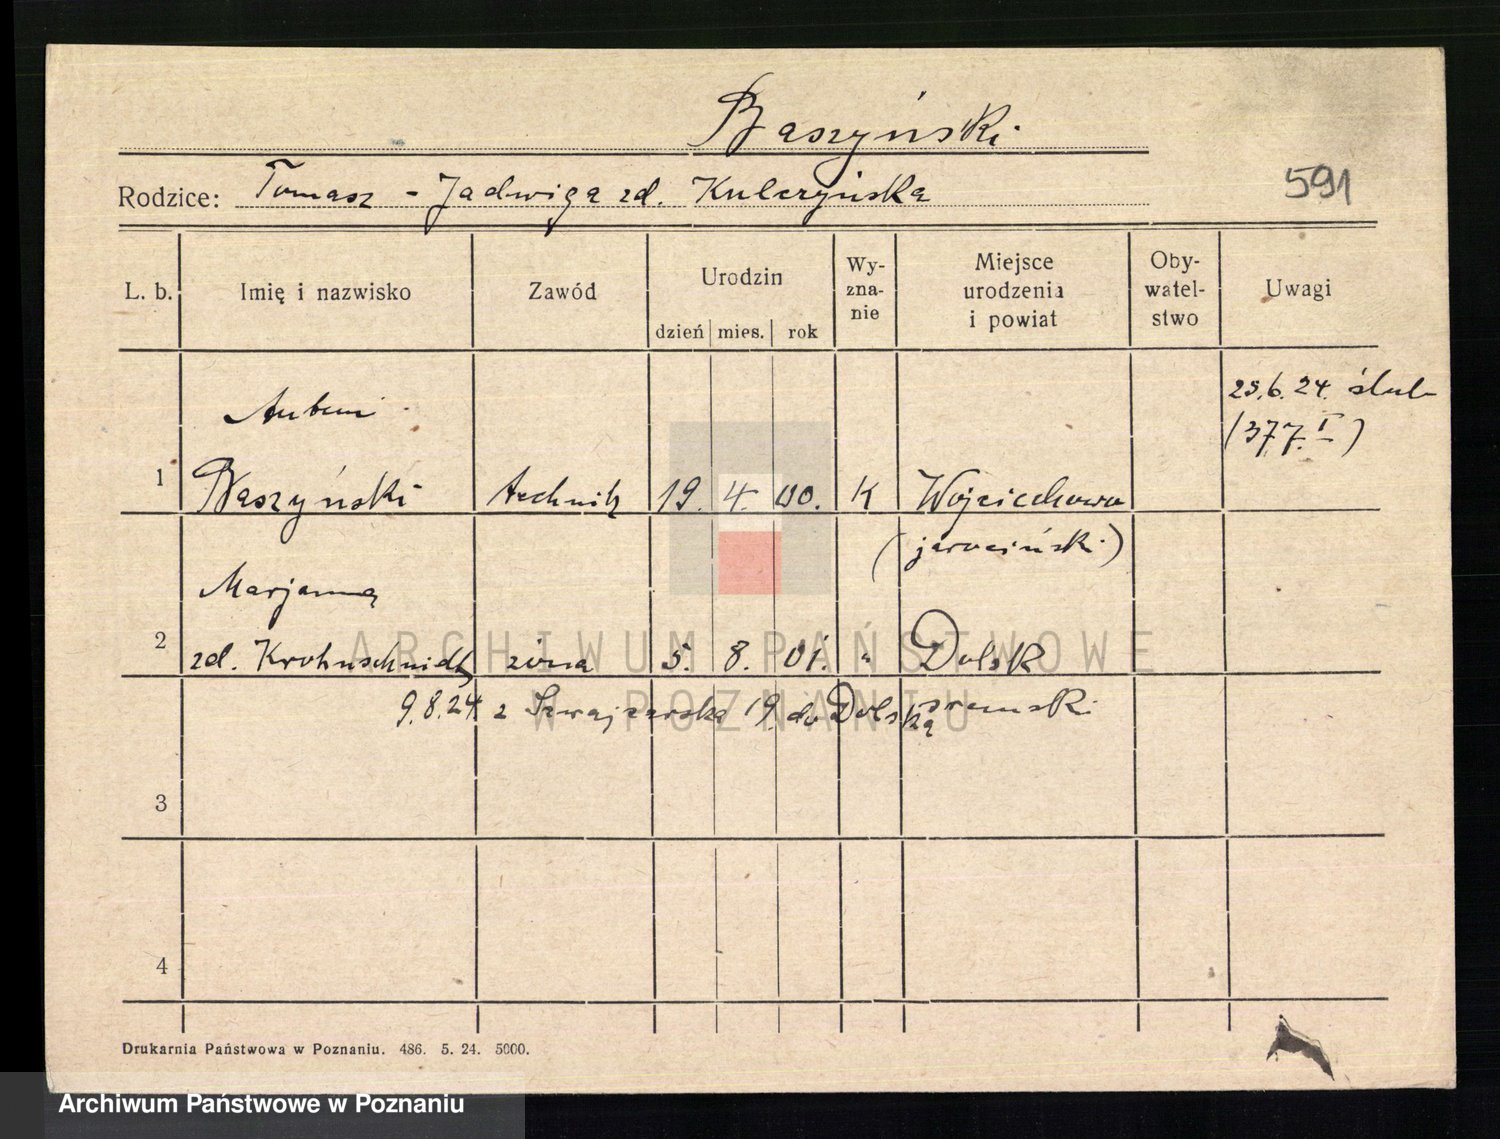 Baszyński
Rodzice: Tomasz - Jadwiga zd. Kulczyńska
591
L. b. Imię i nazwisko Zawód Urodzin dzień mies. rok Wy-zna-nie Miejsce urodzenia i powiat Oby-watel-stwo Uwagi
25.6.24. ślub
(377.I)
Antoni
1 Baszyński technik 19. 4. 00. K Wojciechowo
(jarociński)
Marjanna
2 zd. Krohnschmidt żona 5. 8. 01. " Dolsk
śremski
9.8.24 z Szwajcarska 19. do Dolska
3
4
Drukarnia Państwowa w Poznaniu. 486. 5. 24. 5000.
ARCHIWUM PAŃSTWOWE
W POZNANIU
Archiwum Państwowe w Poznaniu